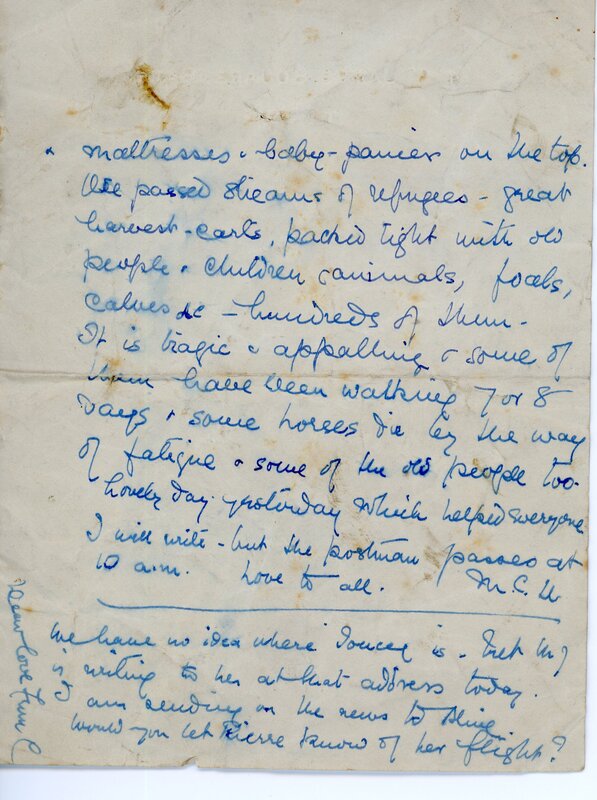 & mattresses & baby-panier on the top.
We passed streams of refugees - great
harvest-carts, packed tight with old
people & children & animals, foals,
calves &c - hundreds of them -
It is tragic & appalling & some of
them have been walking 7 or 8
days & some horses die by the way
of fatigue & some of the old people too -
Lovely day yesterday which helped everyone
I will write - but the postman passes at
10 a.m. Love to all. M.C.U
We have no idea where is -
is writing to her at that address today.
am sending on the news to
Would you let Pierre know of her flight?
Dear love from